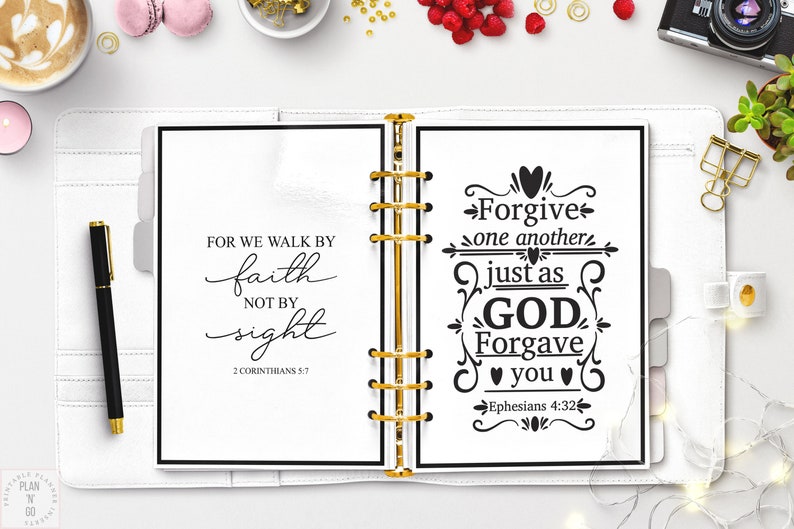 FOR WE WALK BY
faith
NOT BY
sight
2 CORINTHIANS 5:7
Forgive
one another
just as
GOD
Forgave
you
Ephesians 4:32
PRINTABLE PLANNER INSERTS
PLAN
'N'
GO